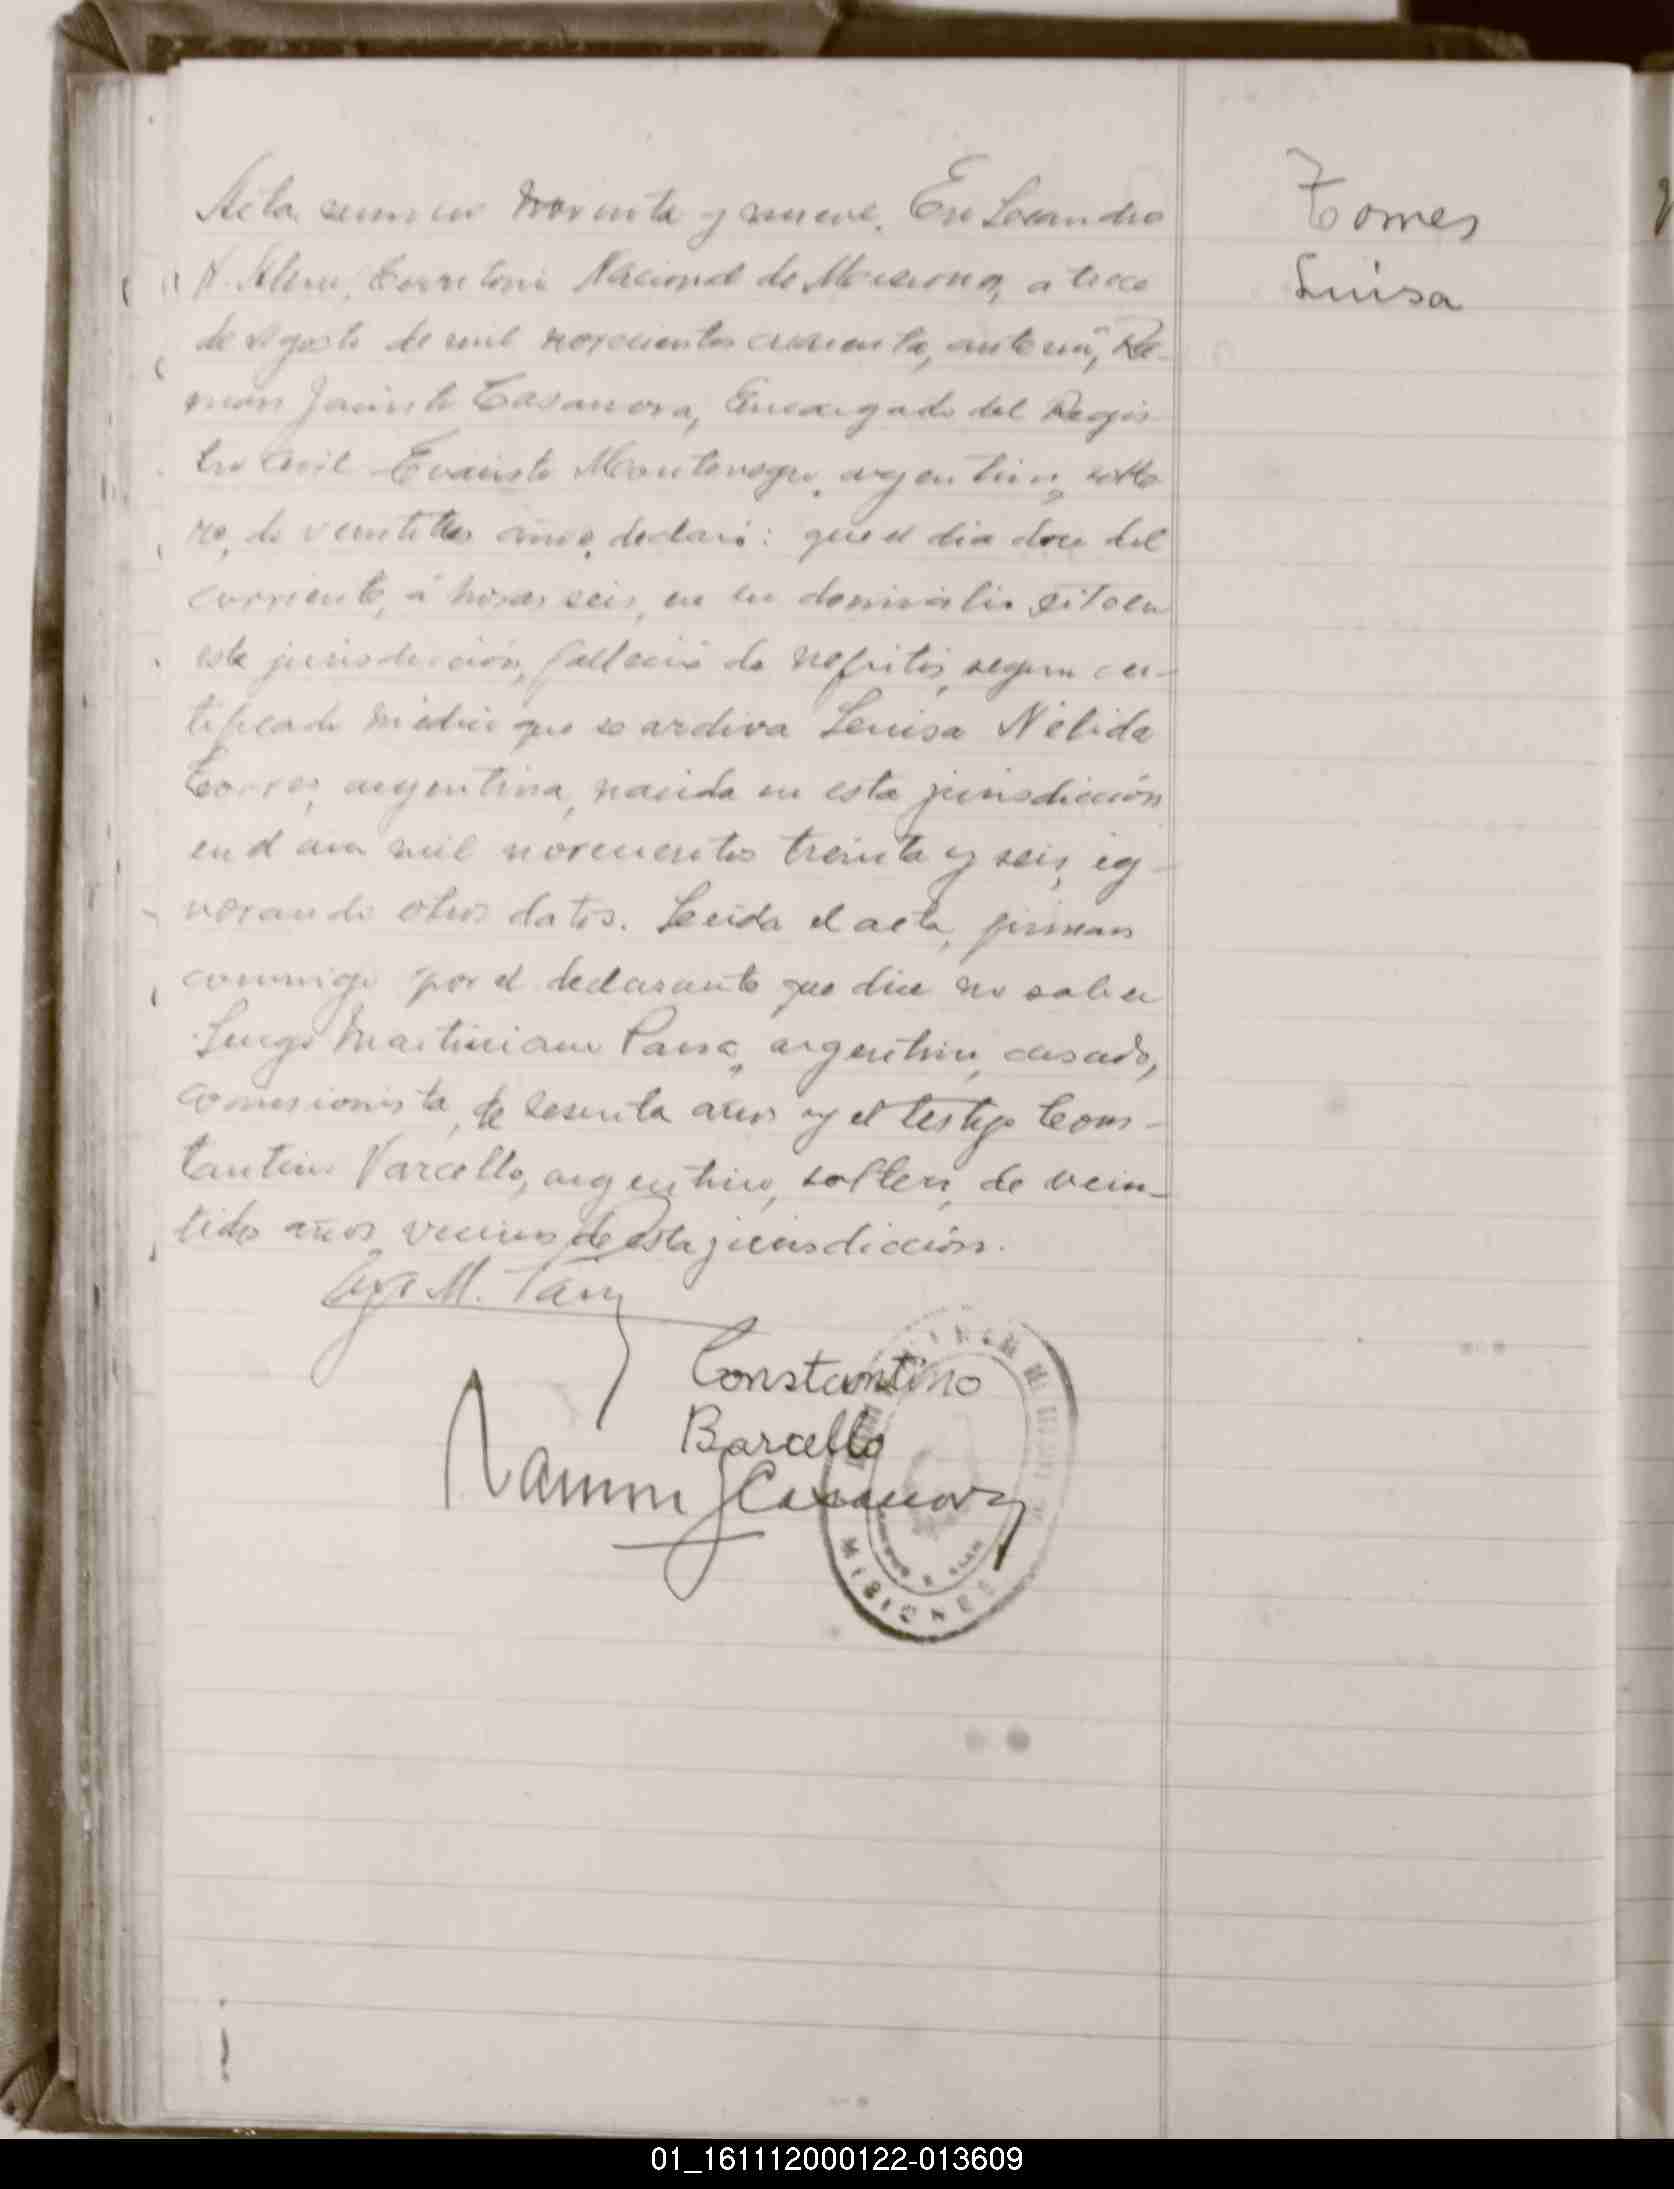 Acta número noventa y nueve. En Leandro
N. Alem, Territorio Nacional de Misiones, a trece
de Agosto de mil novecientos cuarenta, ante mí, Ra-
món Jacinto Casanova, Encargado del Regis-
tro Civil Evaristo Montenegro, argentino, solte-
ro, de veintitres años, declaró: que el día doce del
corriente, á horas seis, en su domicilio sito en
esta jurisdicción, falleció de nefritis, segun cer-
tificado médico que se archiva Luisa Nélida
Torres, argentina, nacida en esta jurisdicción
en el año mil novecientos treinta y seis, ig-
norando otros datos. Leida el acta, firman
conmigo por el declarante que dice no saber
Martiniano argentino, casado,
comisionista, de sesenta años y el testigo Cons-
tantino Varcello, argentino, soltero, de vein-
tidos años vecinos de esta jurisdicción.
M.
Constantino
Barcello
Ramon J Casanova
MISIONES
Torres
Luisa
01_161112000122-013609